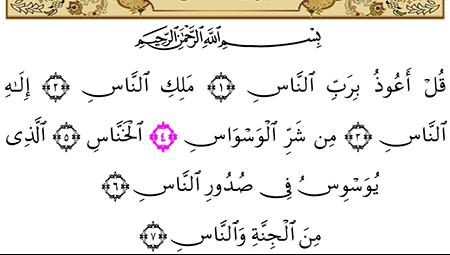 بِسْمِ ٱللَّهِ ٱلرَّحْمَٰنِ ٱلرَّحِيمِ
قُلْ أَعُوذُ بِرَبِّ ٱلنَّاسِ ﴿١﴾ مَلِكِ ٱلنَّاسِ ﴿٢﴾ إِلَٰهِ
ٱلنَّاسِ ﴿٣﴾ مِن شَرِّ ٱلْوَسْوَاسِ ﴿٤﴾ ٱلْخَنَّاسِ ﴿٥﴾ ٱلَّذِى
يُوَسْوِسُ فِى صُدُورِ ٱلنَّاسِ ﴿٦﴾
مِنَ ٱلْجِنَّةِ وَٱلنَّاسِ ﴿٧﴾